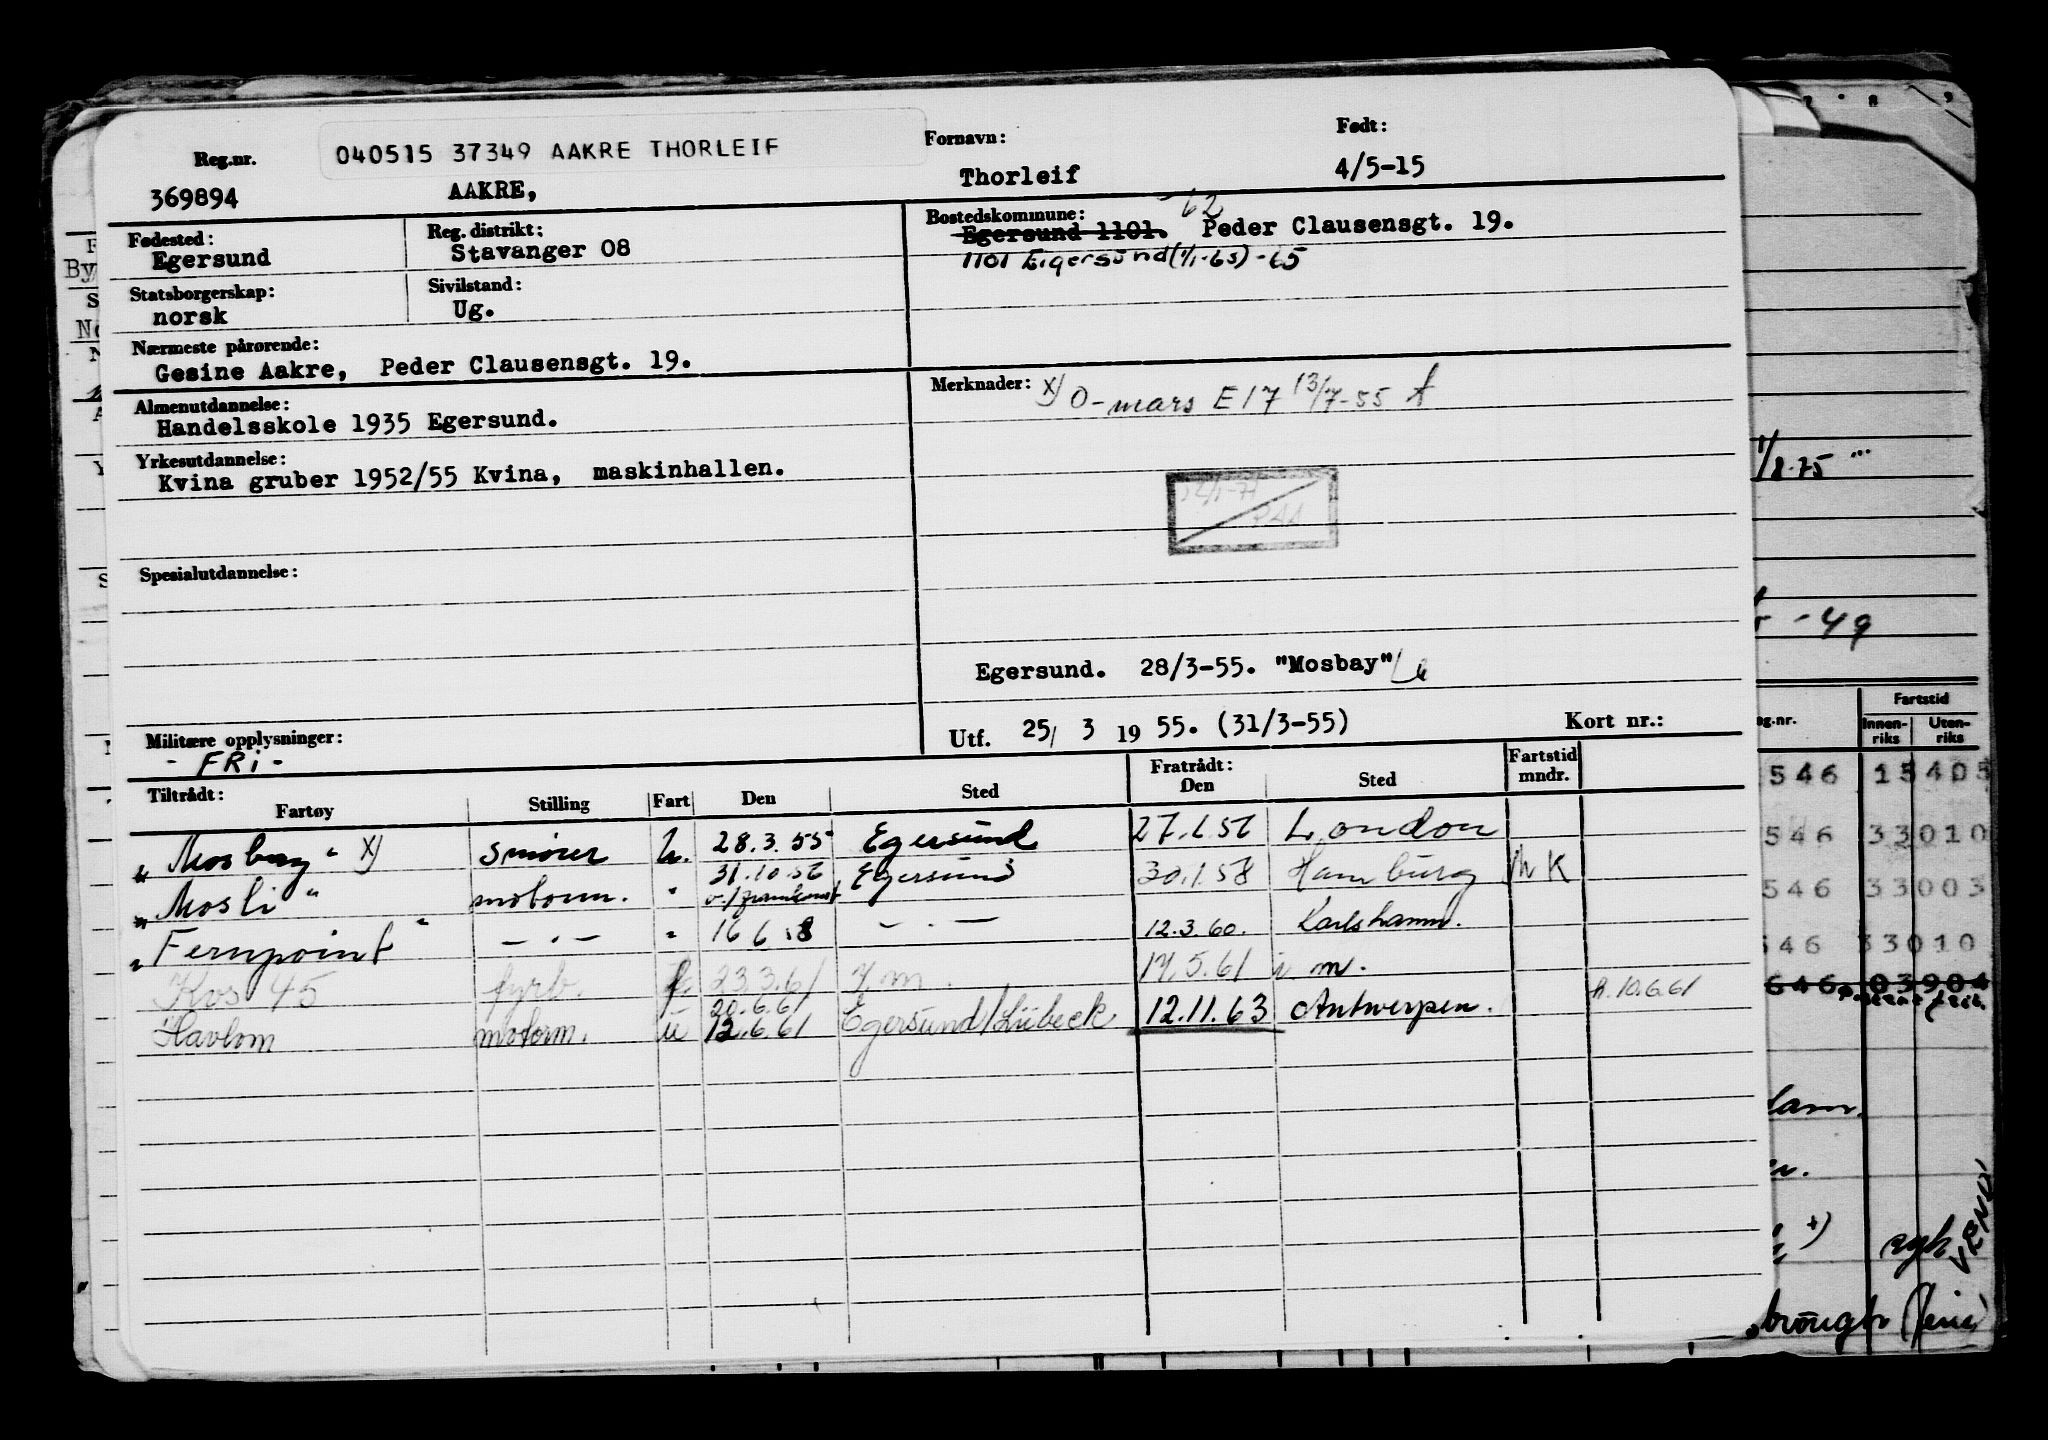 Reg.nr. 040515 37349 AAKRE THORLEIF Fornavn: Født:
369894 AAKRE, Thorleif 4/5-15
Fødested: Reg. distrikt: Bostedskommune: -62
Egersund Stavanger 08 Egersund 1101. Peder Clausensgt. 19.
1101 Eigersund (1/1-65) -65
Statsborgerskap: Sivilstand:
norsk Ug.
Nærmeste pårørende:
Gesine Aakre, Peder Clausensgt. 19.
Almenutdannelse: Merknader: X) O-mars E17 13/7-55
Handelsskole 1935 Egersund.
Yrkesutdannelse:
Kvina gruber 1952/55 Kvina, maskinhallen.
Spesialutdannelse:
Egersund. 28/3-55. "Mosbay"
Militære opplysninger: Utf. 25/ 3 1955. (31/3-55) Kort nr.:
- FRi -
Tiltrådt: Fratrådt: Fartstid
Fartøy Stilling Fart Den Sted Den Sted mndr.
"Mosbay" X) smører u. 28.3.55 Egersund 27.1.56 London
31.10.56
"Mosli" motorm. " Egersund 30.1.58 Hamburg K
"Fernpoint" - " - " 16 6 58 - " - 12.3.60. Karlshamn.
Kos 45 fyrb. f. 23.3.61 17.5.61 i m.
20.6.61 A. 10.6.61
Havlom motorm. u 12.6.61 Egersund/Lübeck 12.11.63 Antwerpen.
1/8-75
- 49
Fartstid
Innen-riks Uten-riks
546 15405
546 33010
546 33003
546 33010
646 03904
VEND